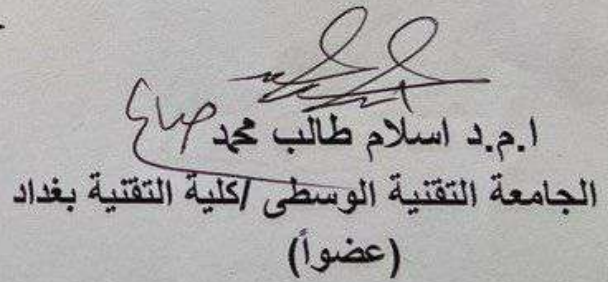 ا.م.د اسلام طالب محمد صالح
الجامعة التقنية الوسطى /كلية التقنية بغداد
(عضواً)